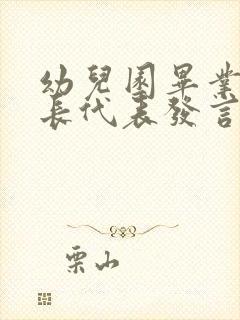 幼兒園畢業
長代表發言
栗山